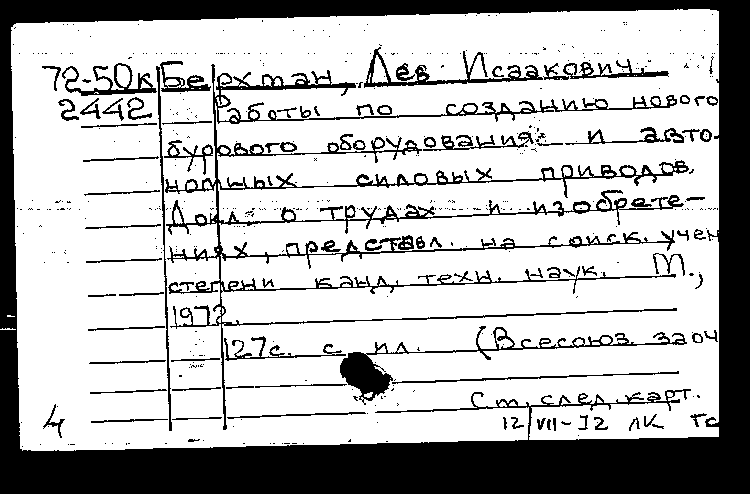 72-50к Берхман, Лев Исаакович.
2442 Работы по созданию нового
бурового оборудования и авто-
номных силовых приводов.
Докл. о трудах и изобрете-
ниях, представл. на соиск. учен
степени канд. техн. наук. М.,
1972.
127с. с ил. (Всесоюз. заоч
См. след. карт.
4 12/VII-72 ЛК